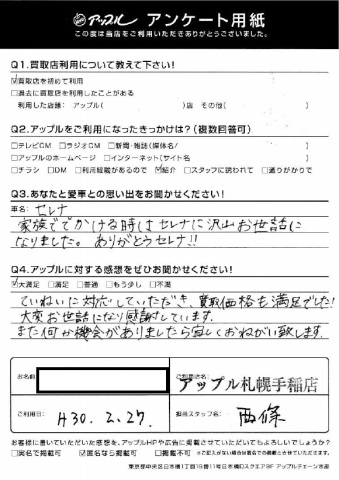 アップル アンケート用紙
この度は当店をご利用いただきありがとうございました。
Q1.買取店利用について教えて下さい!
☑買取店を初めて利用
□過去に買取店を利用したことがある
利用した店舗: アップル( )店 その他( )
Q2.アップルをご利用になったきっかけは?(複数回答可)
□テレビCM □ラジオCM □新聞・雑誌(媒体名/ )
□アップルのホームページ □インターネット(サイト名 )
□チラシ □DM □利用経験があるので ☑紹介 □スタッフに誘われて □通りがかりで
Q3.あなたと愛車との思い出をお聞かせください!
車名: セレナ
家族ででかける時はセレナに沢山お世話に
なりました。ありがとうセレナ!!
Q4.アップルに対する感想をぜひお聞かせください!
☑大満足 □満足 □普通 □もう少し □不満
ていねいに対応していただき、買取価格も満足でした!
大変お世話になり感謝しています。
また何か機会がありましたら宜しくおねがい致します。
お名前
ご利用店名:
アップル札幌手稲店
ご利用日: H30. 2. 27.
担当スタッフ名: 西條
お客様に書いていただいた感想を、アップルHPや広告に掲載させていただいてもよろしいでしょうか?
□実名で掲載可 ☑匿名なら掲載可 □掲載不可 ※ご記入がない場合は匿名での掲載とさせていただきます。
東京都中央区日本橋1丁目19番11号日本橋ロスクエア9F アップルチェーン本部